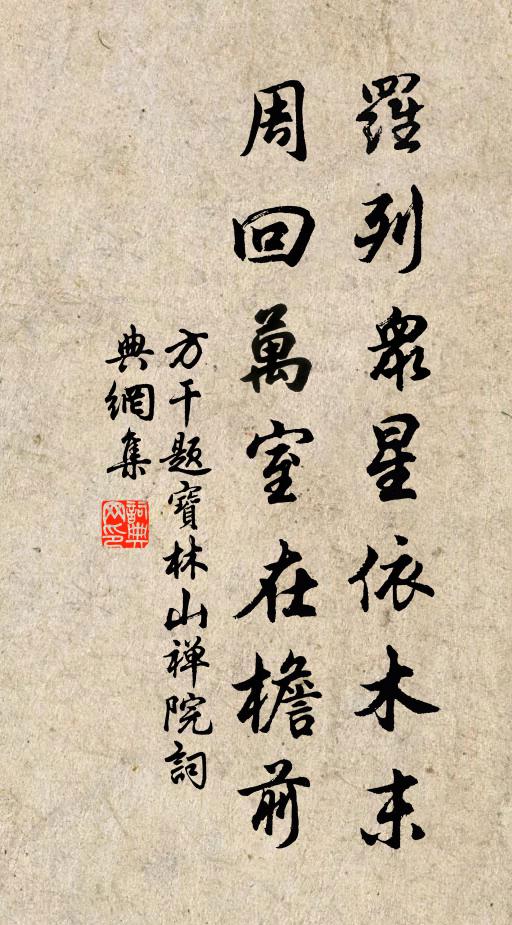 羅列衆星依木末
周回萬室在檐前
方干題寶林山禅院詞
典網集
詞典
网印